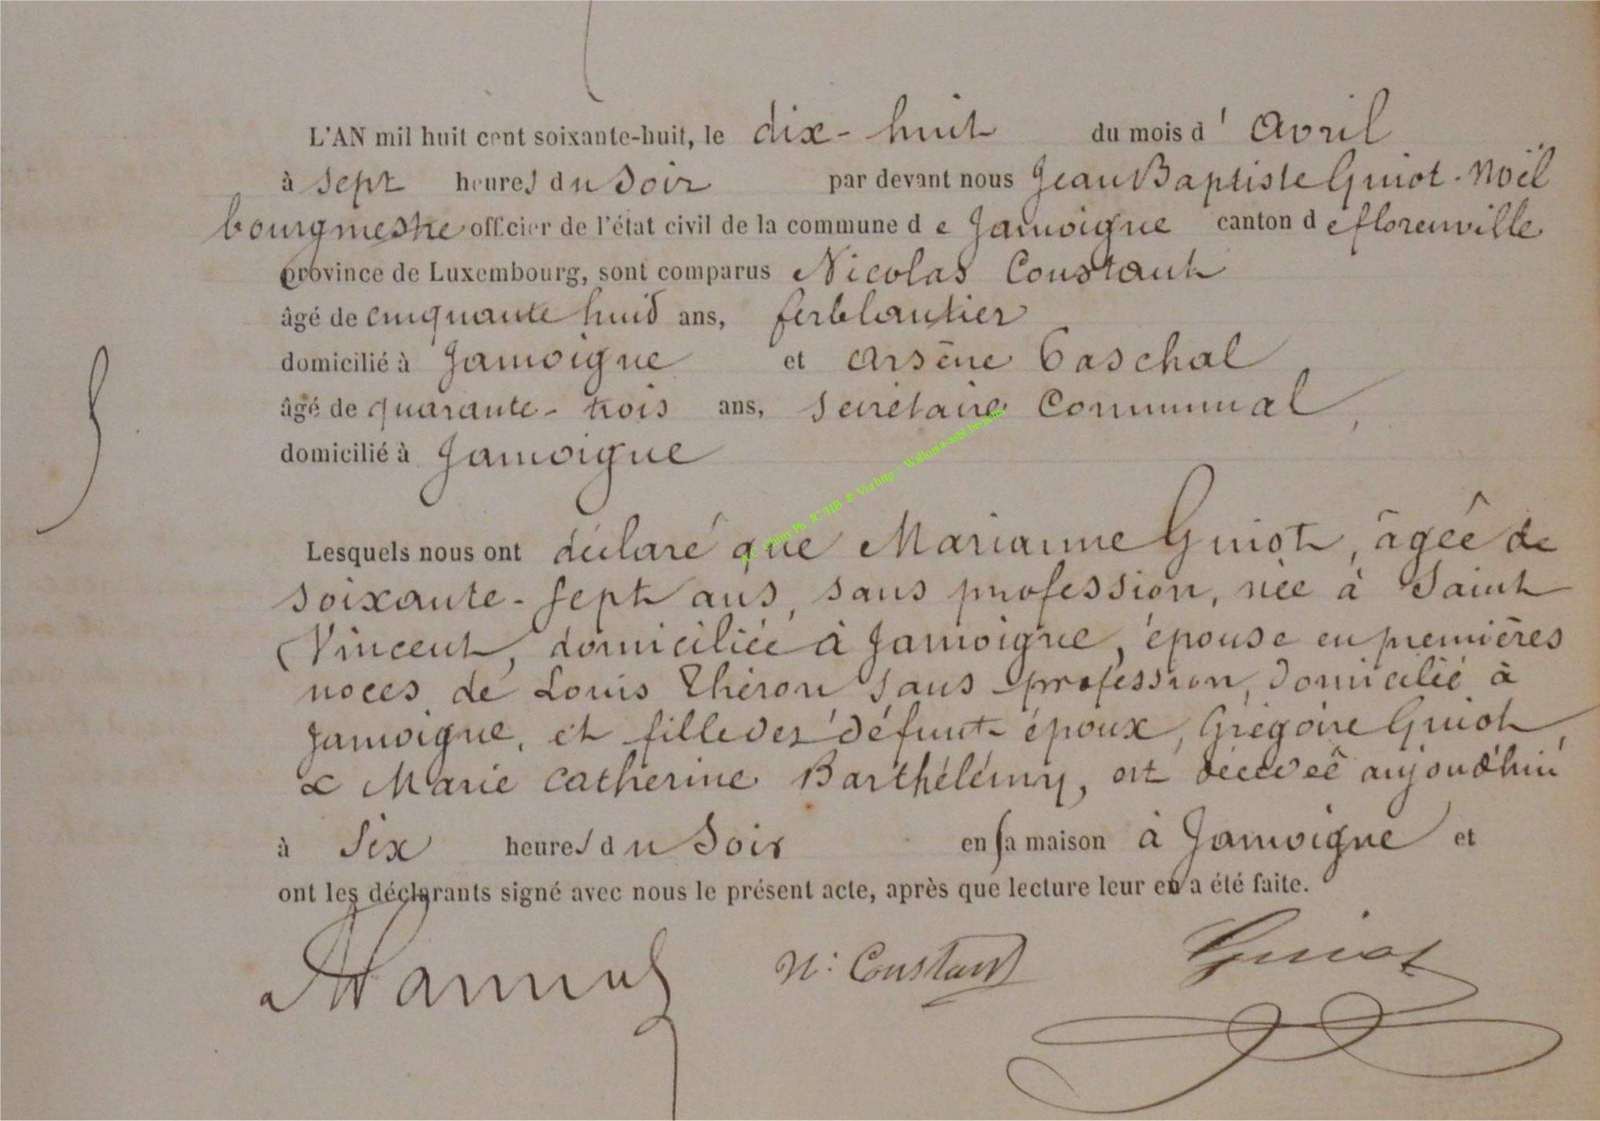 L'AN mil huit cent soixante-huit, le dix-huit du mois d'Avril
à sept heures du Soir par devant nous Jean Baptiste Guiot-Noël
bourgmestre officier de l'état civil de la commune de Jamoigne canton de florenville
province de Luxembourg, sont comparus Nicolas Constant
âgé de cinquante huit ans, ferblantier
domicilié à Jamoigne et Arsène
âgé de quarante-trois ans, secrétaire Communal,
domicilié à Jamoigne
Lesquels nous ont déclaré que Marianne Guiot, âgée de
soixante-sept ans, sans profession, née à Saint
Vincent, domiciliée à Jamoigne, épouse en premières
noces de Louis Théron sans profession, domicilié à
Jamoigne, et fille des défunt époux, Grégoire Guiot,
& Marie Catherine Barthélémy, est décédée aujourd'hui
à Six heures du Soir en sa maison à Jamoigne et
ont les déclarants signé avec nous le présent acte, après que lecture leur en a été faite.
N: Constant Guiot